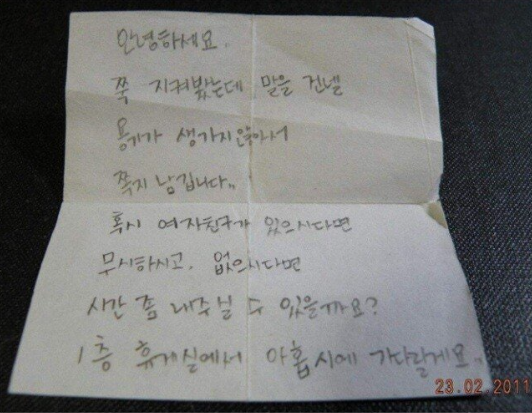 안녕하세요.
쭉 지켜봤는데 말을 건넬
용기가 생기지않아서
쪽지 남깁니다..
혹시 여자친구가 있으시다면
무시하시고, 없으시다면
시간 좀 내주실 수 있을까요?
1층 휴게실에서 아홉시에 기다릴게요.
23.02.2011